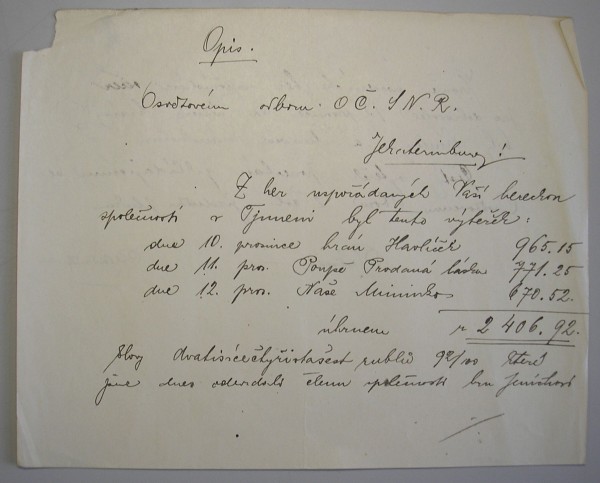 Opis.
Osvětovému odboru O Č. S N. R.
Jekaterinburg!
Z her uspořádaných Vaší hereckou
společností v Tjumeni byl tento výtěžek:
dne 10. prosince hrán Havlíček 965.15
dne 11. pros. Poupě Prodaná láska 771.25
dne 12. pros. Naše Miminko 670.52.
úhrnem r 2 406.92.
Slovy dvatisícečtyřistašest rublů 92/100 které
jsme dnes odevzdali členu společnosti bru